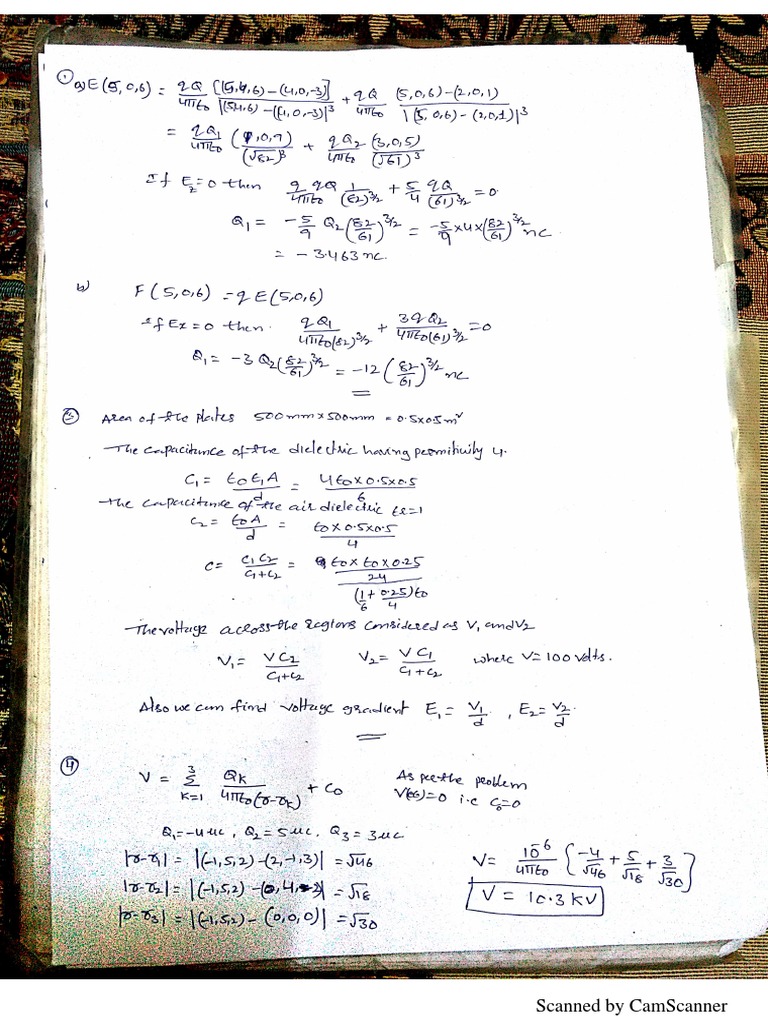 ① a) E(5,0,6) = qQ/4πε0 [(5,4,6)-(4,0,-3)]/|(5,4,6)-(4,0,-3)|³ + qQ/4πε0 (5,0,6)-(2,0,1)/|(5,0,6)-(2,0,1)|³
= qQ1/4πε0 (1,0,9)/(√82)³ + qQ2/4πε0 (3,0,5)/(√61)³
If Ez=0 then
Q1 = -5/9 Q2 (82/61)^3/2 = -5/9 x 4 x (82/61)^3/2 nc
= -3.463 nc.
b) F(5,0,6) = qE(5,0,6)
if Ex=0 then. qQ1/4πε0(82)^3/2 + 3qQ2/4πε0(61)^3/2 = 0
Q1 = -3Q2 (82/61)^3/2 = -12 (82/61)^3/2 nc
③ Area of the plates 500mm x 500mm = 0.5x0.5m²
The capacitance of the dielectric having permitivity 4.
C1 = ε0ε1A/d = 4ε0x0.5x0.5/6
the capacitance of the air dielectric εr=1
C2 = ε0A/d = ε0x0.5x0.5/4
C = C1C2/C1+C2 = ε0xε0x0.25/24 / (1/6 + 0.25/4)ε0
The voltage across the regions considered as V1 and V2
V1 = VC2/C1+C2 V2 = VC1/C1+C2 where V=100 volts.
Also we can find voltage gradient E1 = V1/d , E2 = V2/d.
④ V = Σ³K=1 QK/4πε0(r-rK) + C0 As per the problem
V(∞)=0 i.e C0=0
Q1=-4μc, Q2=5μc, Q3=3μc
|r-r1| = |(-1,5,2)-(2,-1,3)| = √46
|r-r2| = |(-1,5,2)-(0,4,-2)| = √18
|r-r3| = |(-1,5,2)-(0,0,0)| = √30
V = 10⁻⁶/4πε0 {-4/√46 + 5/√18 + 3/√30}
V = 10.3 KV
Scanned by CamScanner